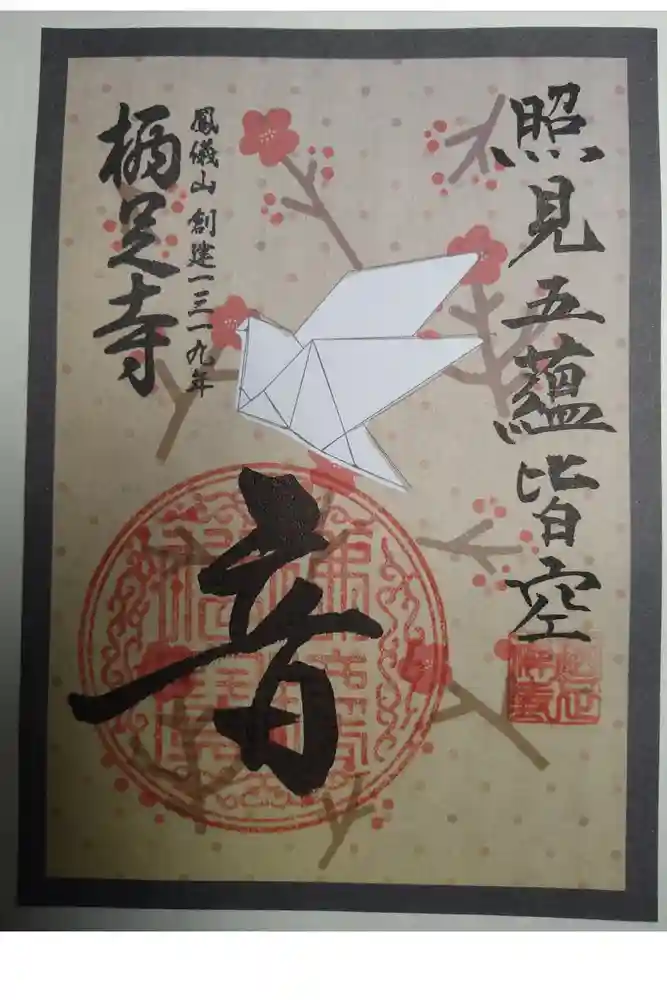 照見五蘊皆空
音
鳳儀山 創建一三一九年
栖足寺